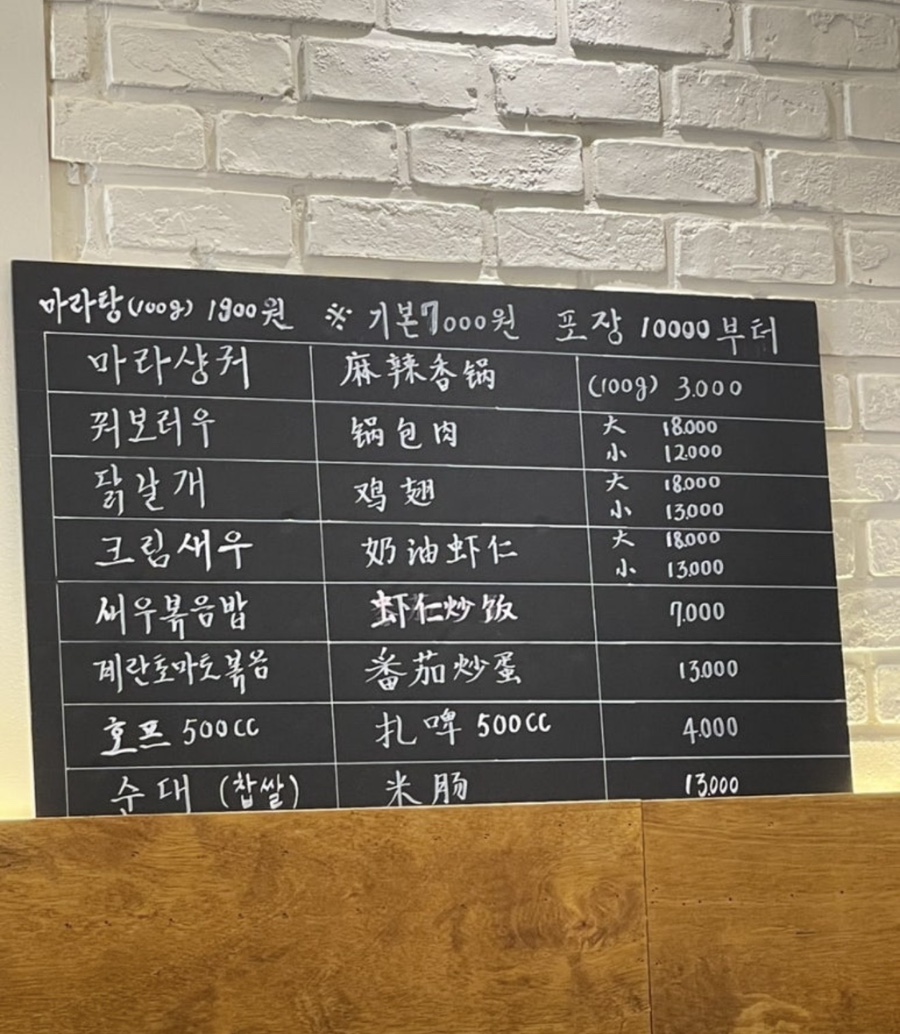 마라탕(100g) 1900원 ※ 기본7000원 포장 10000부터
마라샹궈 麻辣香锅 (100g) 3.000
꿔보러우 锅包肉 大 18.000
小 12.000
닭날개 鸡翅 大 18.000
小 13.000
크림새우 奶油虾仁 大 18.000
小 13.000
새우볶음밥 虾仁炒饭 7.000
계란토마토볶음 番茄炒蛋 13.000
호프 500CC 扎啤 500CC 4.000
순대 (찹쌀) 米肠 13.000